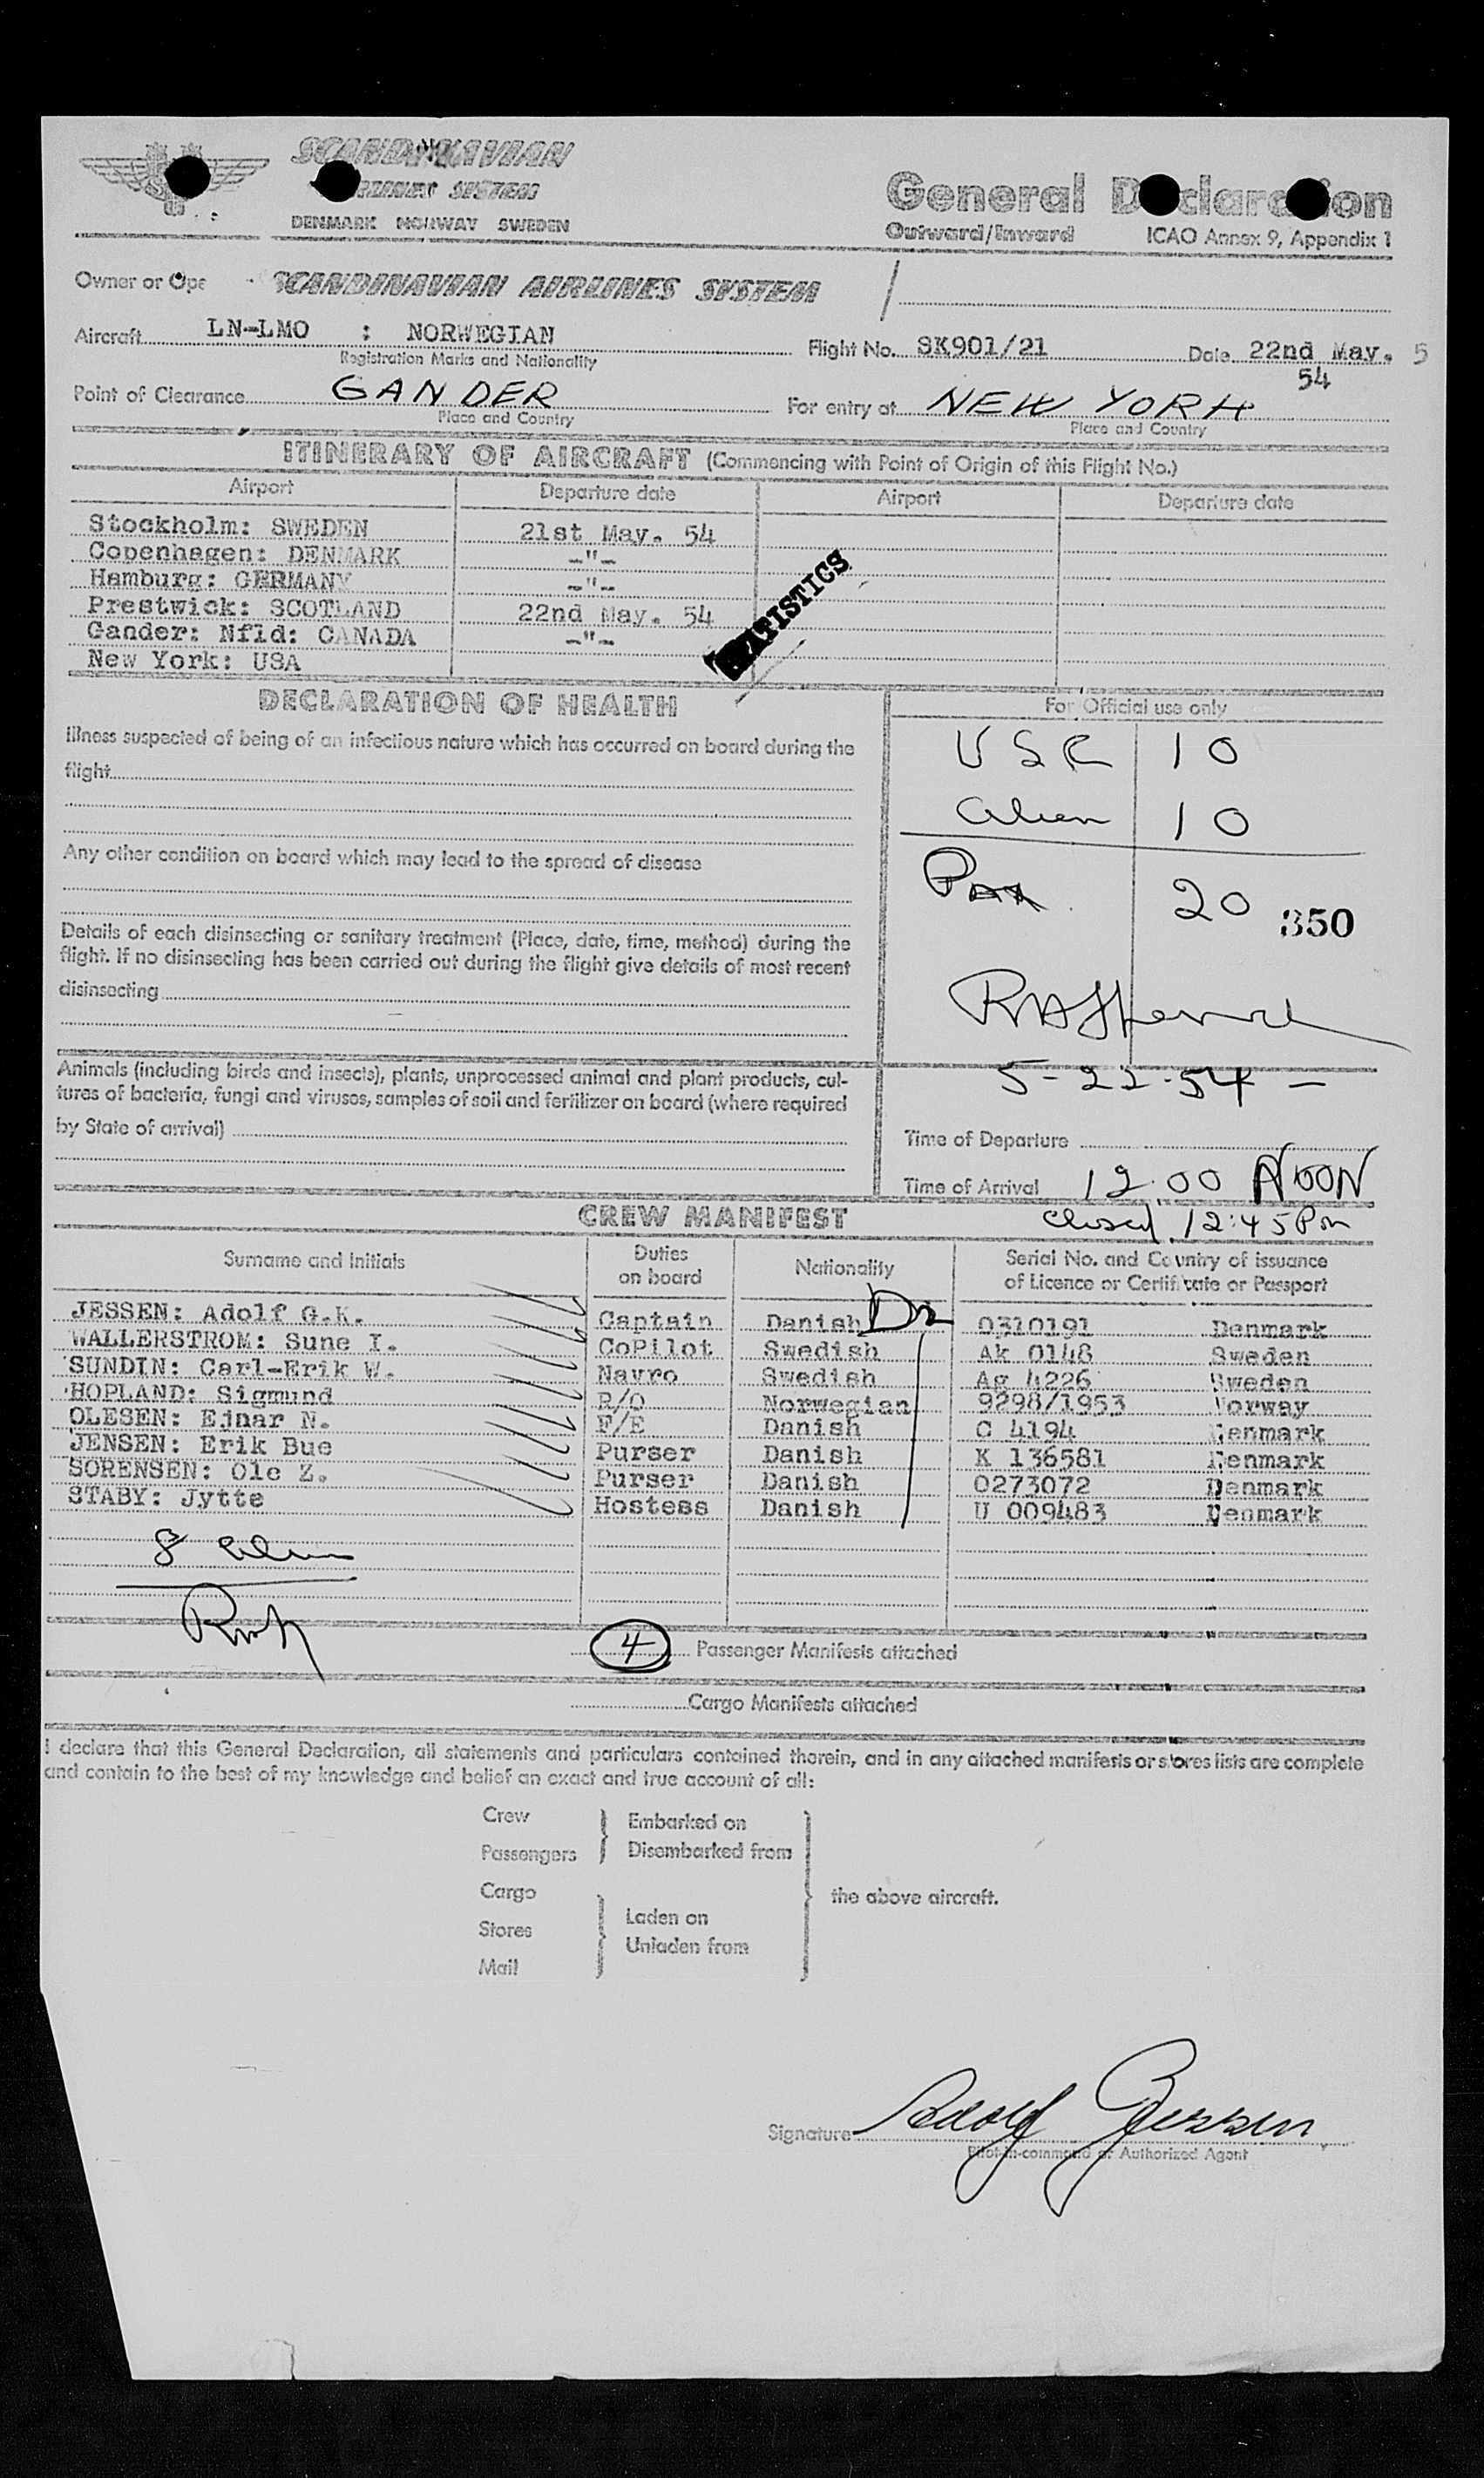 SCANDINAVIAN
AIRLINES SYSTEM
DENMARK NORWAY SWEDEN
General Declaration
Outward/Inward ICAO Annex 9, Appendix 1
Owner or Ope SCANDINAVIAN AIRLINES SYSTEM
Aircraft LN-LMO : NORWEGIAN Flight No. SK901/21 Date 22nd May. 5
Registration Marks and Nationality 54
Point of Clearance GANDER For entry at NEW YORK
Place and Country Place and Country
ITINERARY OF AIRCRAFT (Commencing with Point of Origin of this Flight No.)
Airport Departure date Airport Departure date
Stockholm: SWEDEN 21st May. 54
Copenhagen: DENMARK -"-
Hamburg: GERMANY -"-
Prestwick: SCOTLAND 22nd May. 54
Gander: Nfld: CANADA -"-
New York: USA
STATISTICS
DECLARATION OF HEALTH
Illness suspected of being of an infectious nature which has occurred on board during the
flight
Any other condition on board which may lead to the spread of disease
Details of each disinsecting or sanitary treatment (Place, date, time, method) during the
flight. If no disinsecting has been carried out during the flight give details of most recent
disinsecting
Animals (including birds and insects), plants, unprocessed animal and plant products, cul-
tures of bacteria, fungi and viruses, samples of soil and fertilizer on board (where required
by State of arrival)
For Official use only
USC 10
Alien 10
Pax 20 350
5-22-54-
Time of Departure
Time of Arrival 12.00 NOON
closed 12:45 Pm
CREW MANIFEST
Surname and Initials Duties on board Nationality Serial No. and Country of issuance of Licence or Certificate or Passport
JESSEN: Adolf G.K. Captain Danish 0310191 Denmark
WALLERSTROM: Sune I. CoPilot Swedish Ak 0148 Sweden
SUNDIN: Carl-Erik W. Navro Swedish Ag 4226 Sweden
HOPLAND: Sigmund R/O Norwegian 9298/1953 Norway
OLESEN: Ejnar N. F/E Danish C 4194 Denmark
JENSEN: Erik Bue Purser Danish K 136581 Denmark
SORENSEN: Ole Z. Purser Danish 0273072 Denmark
STABY: Jytte Hostess Danish U 009483 Denmark
8 alien
4 Passenger Manifests attached
Cargo Manifests attached
I declare that this General Declaration, all statements and particulars contained therein, and in any attached manifests or stores lists are complete
and contain to the best of my knowledge and belief an exact and true account of all:
Crew Embarked on
Passengers Disembarked from
Cargo the above aircraft.
Stores Laden on
Mail Unladen from
Signature Adolf Jessen
Pilot-in-command or Authorized Agent